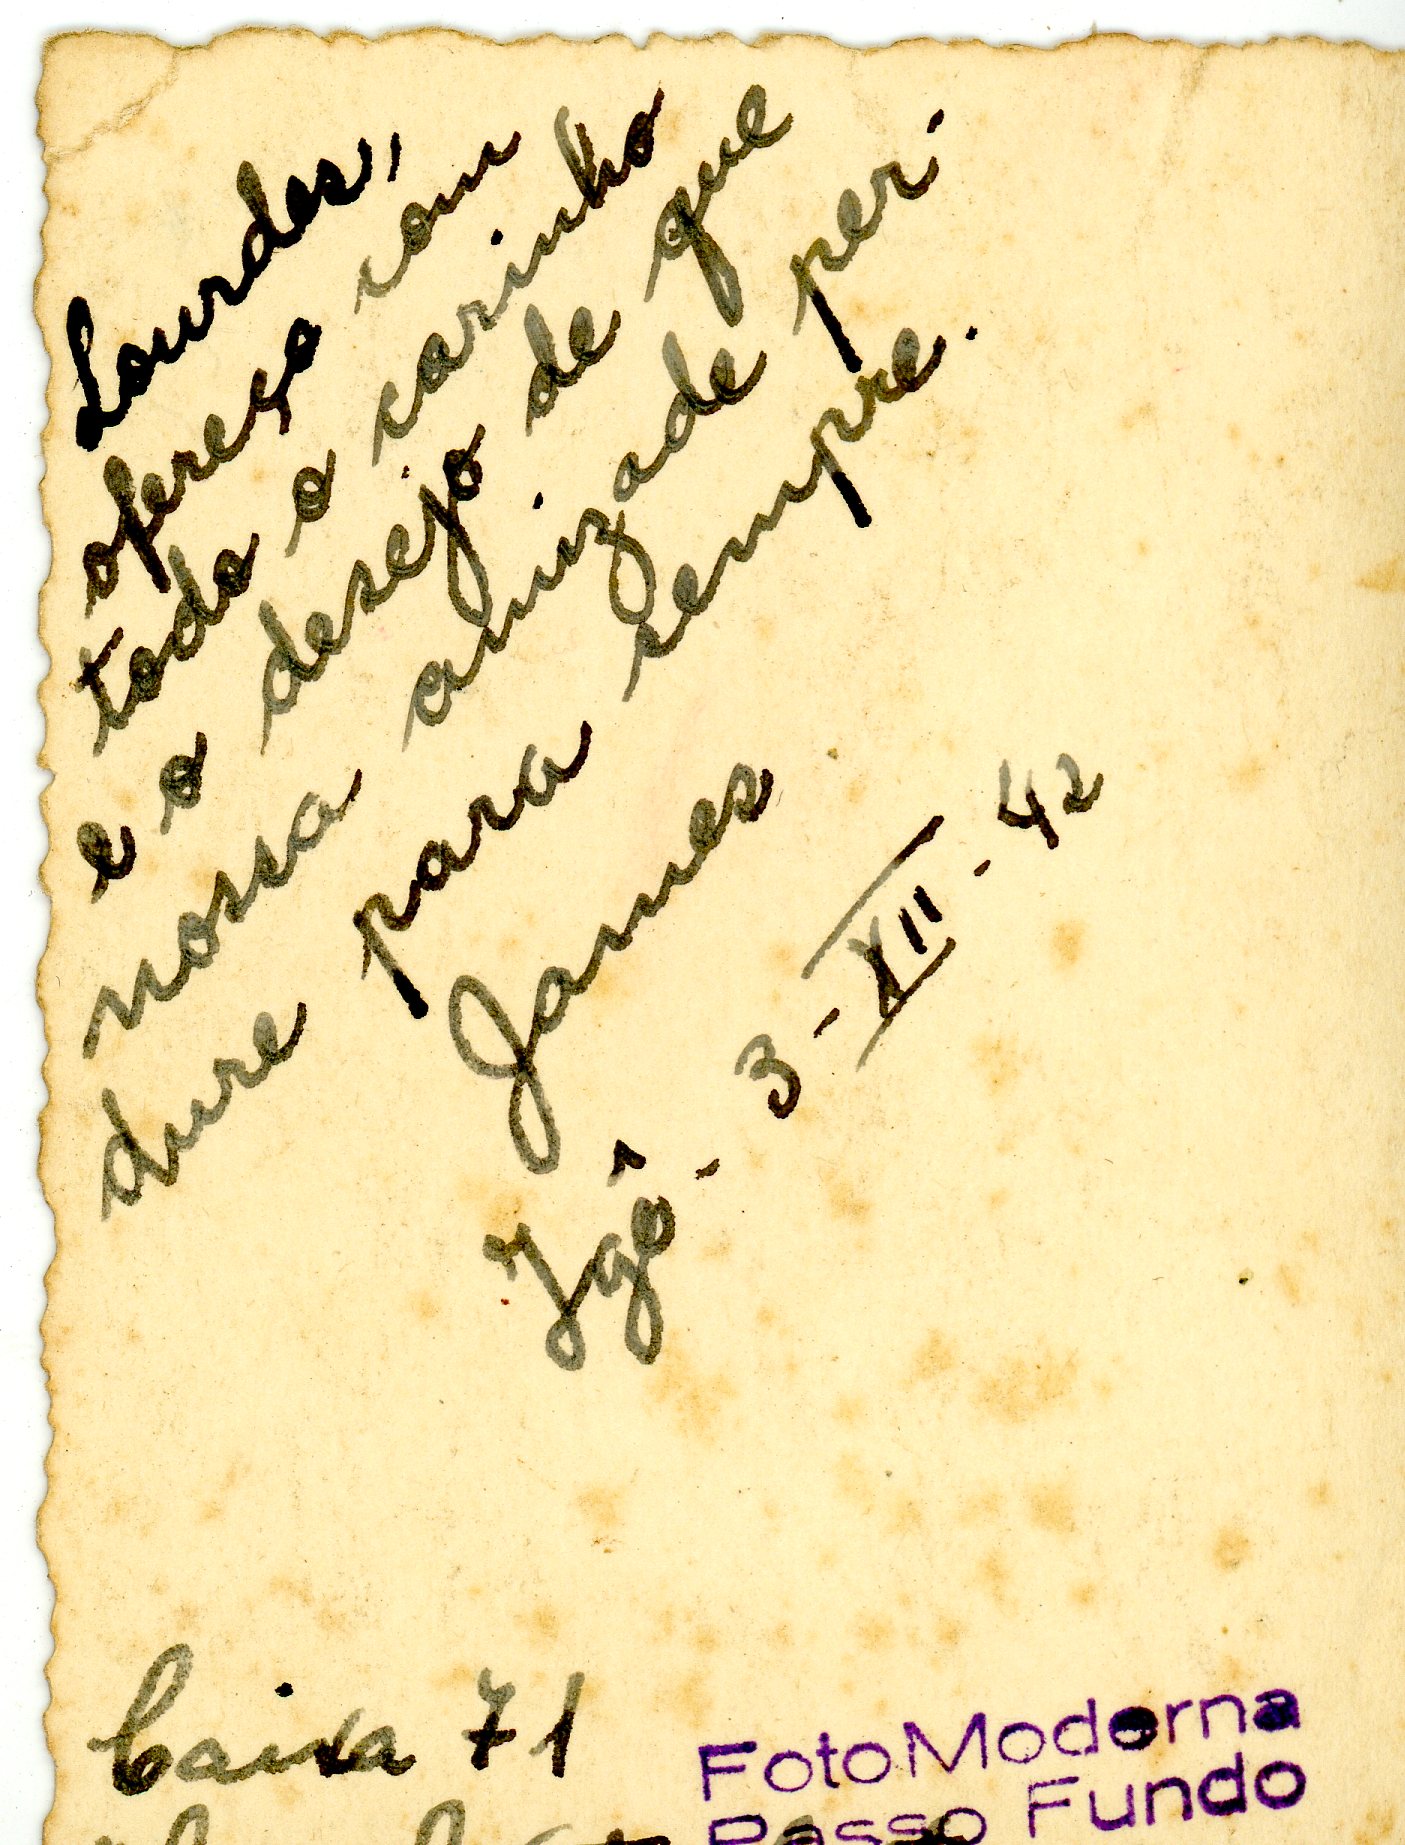 Lourdes,
ofereço com
todo o carinho
e o desejo de que
nossa amizade per-
dure para sempre.
James
Igê - 3-XII-42
Caixa 71
Foto Moderna
Passo Fundo